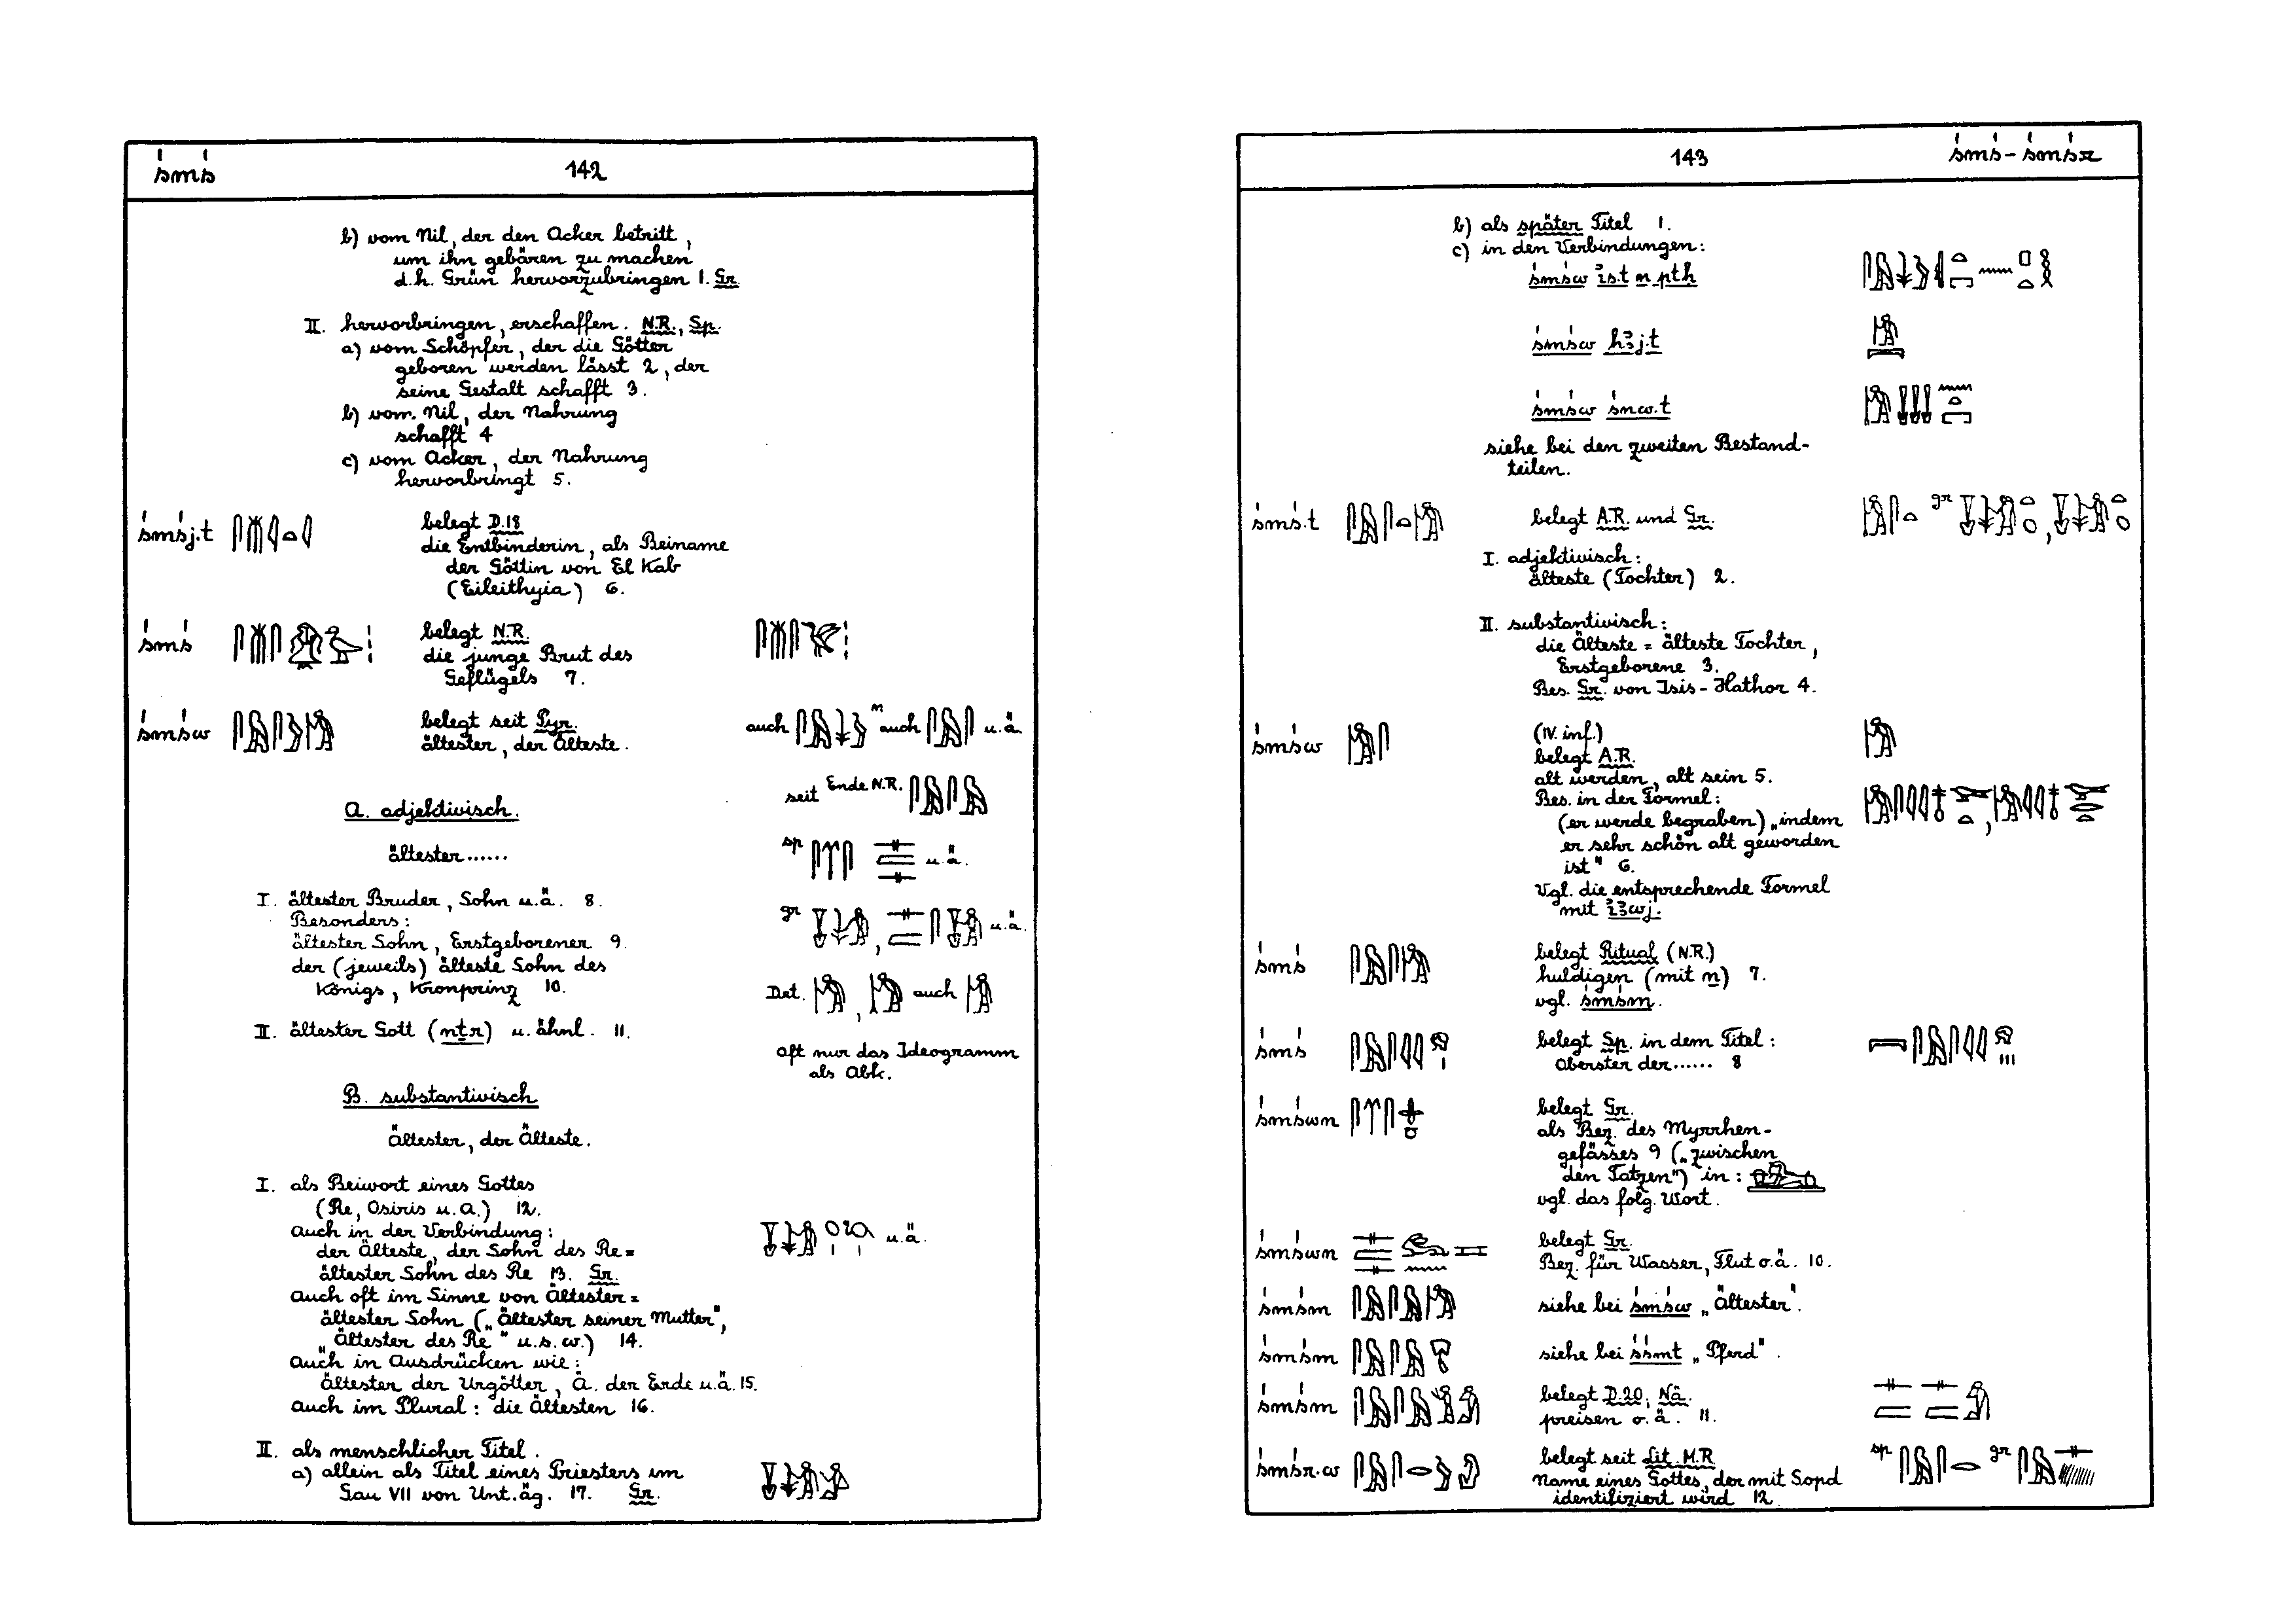 śmś 142
b) vom Nil, der den Acker betritt,
um ihn gebären zu machen
d.h. Grün hervorzubringen 1. Gr.
II. hervorbringen, erschaffen. N.R., Sp.
a) vom Schöpfer, der die Götter
geboren werden lässt 2, der
seine Gestalt schafft 3.
b) vom Nil, der Nahrung
schafft 4
c) vom Acker, der Nahrung
hervorbringt 5.
śmśj.t belegt D.18
die Entbinderin, als Beiname
der Göttin von El Kab
(Eileithyia) 6.
śmś belegt N.R.
die junge Brut des
Geflügels 7.
śmśw belegt seit Pyr. auch auch u.ä.
ältester, der Älteste.
seit Ende N.R.
A. adjektivisch.
ältester...... sp u.ä.
I. ältester Bruder, Sohn u.ä. 8.
Besonders: gr u.ä.
ältester Sohn, Erstgeborener 9.
der (jeweils) älteste Sohn des
Königs, Kronprinz 10. Det. , auch
II. ältester Gott (nṯr) u. ähnl. 11.
oft nur das Ideogramm
als Abk.
B. substantivisch
Ältester, der Älteste.
I. als Beiwort eines Gottes
(Re, Osiris u.a.) 12.
auch in der Verbindung: u.ä.
der Älteste, der Sohn des Re =
ältester Sohn des Re 13. Gr.
auch oft im Sinne von Ältester =
ältester Sohn („Ältester seiner Mutter",
„Ältester des Re" u.s.w.) 14.
auch in Ausdrücken wie:
Ältester der Urgötter, Ä. der Erde u.ä. 15.
auch im Plural: die Ältesten 16.
II. als menschlicher Titel.
a) allein als Titel eines Priesters im
Gau VII von Unt.äg. 17. Gr.
143 śmś - śmśr
b) als später Titel 1.
c) in den Verbindungen:
śmśw iś.t n ptḥ
śmśw hꜣj.t
śmśw śnw.t
siehe bei den zweiten Bestand-
teilen.
śmś.t belegt A.R. und Gr. gr
I. adjektivisch:
älteste (Tochter) 2.
II. substantivisch:
die Älteste = älteste Tochter,
Erstgeborene 3.
Bes. Gr. von Isis-Hathor 4.
śmśw (IV. inf.)
belegt A.R.
alt werden, alt sein 5.
Bes. in der Formel:
(er werde begraben) „indem
er sehr schön alt geworden
ist" 6.
Vgl. die entsprechende Formel
mit iꜣwj.
śmś belegt Ritual (N.R.)
huldigen (mit n) 7.
vgl. śmśm.
śmś belegt Sp. in dem Titel:
Oberster der...... 8
śmśwn belegt Gr.
als Bez. des Myrrhen-
gefässes 9 („zwischen
den Tatzen") in:
vgl. das folg. Wort.
śmśwn belegt Gr.
Bez. für Wasser, Flut o.ä. 10.
śmśm siehe bei śmśw „Ältester".
śmśm siehe bei śśmt „Pferd".
śmśm belegt D.20; Nä.
preisen o.ä. 11.
śmśr.w belegt seit Lit. M.R sp gr
Name eines Gottes, der mit Sopd
identifiziert wird 12